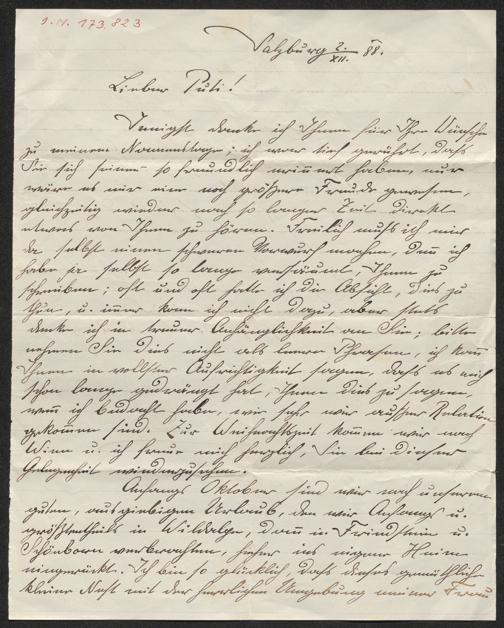 I.N. 173.823
Salzburg 2./XII. 88.
Lieber Puti!
Innigst danke ich Ihnen für Ihre Wünsche
zu meinem Namenstage; ich war tief gerührt, daß
Sie sich meiner so freundlich erinnert haben, nur
wäre es mir eine noch größere Freude gewesen,
gleichzeitig wieder nach so langer Zeit direkt
etwas von Ihnen zu hören. Freilich muß ich mir
da selbst einen schweren Vorwurf machen, denn ich
habe ja selbst so lange versäumt, Ihnen zu
schreiben; oft und oft hatte ich die Absicht, dies zu
thun, u. immer kam ich nicht dazu, aber stets
denke ich in treuer Anhänglichkeit an Sie; bitte
nehmen Sie dies nicht als leere Phrasen, ich kann
Ihnen in vollster Aufrichtigkeit sagen, daß es mich
schon lange gedrängt hat, Ihnen dies zu sagen,
wenn ich bedacht habe, wie sehr wir außer Relation
gekommen sind. Zur Weihnachtszeit kommen wir nach
Wien u. ich freue mich herzlich, Sie bei dieser
Gelegenheit wiederzusehen.
Anfangs Oktober sind wir nach unserem
guten, ausgiebigen Urlaub, den wir Anfangs u.
größtentheils in Wildalpe, dann in u.
Schönborn verbrachten, hieher ins eigene Heim
eingerückt. Ich bin so glücklich, daß dieses gemüthliche
kleine Nest mit der herrlichen Umgebung meiner Frau